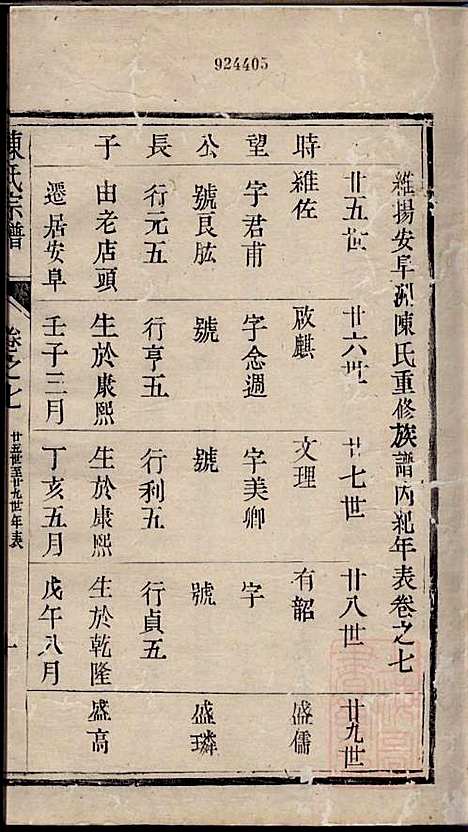 924405
維揚安阜洲陳氏重修族譜內紀年表卷之七
廿五世 廿六世 廿七世 廿八世 廿九世
時 維佐 啟麒 文理 有韶 盛儒
望 字君甫 字念週 字美卿 字
公 號良肱 號 號 號 盛璘
長 行元五 行亨五 行利五 行貞五
子 由老店頭 生於康熙 生於康熙 生於乾隆 盛高
遷居安阜 壬子三月 丁亥五月 戊午八月
陳氏宗譜 卷之七 廿五世至廿九世年表 一